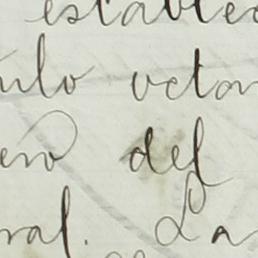 establec
ulo octav
eno del
ral. La